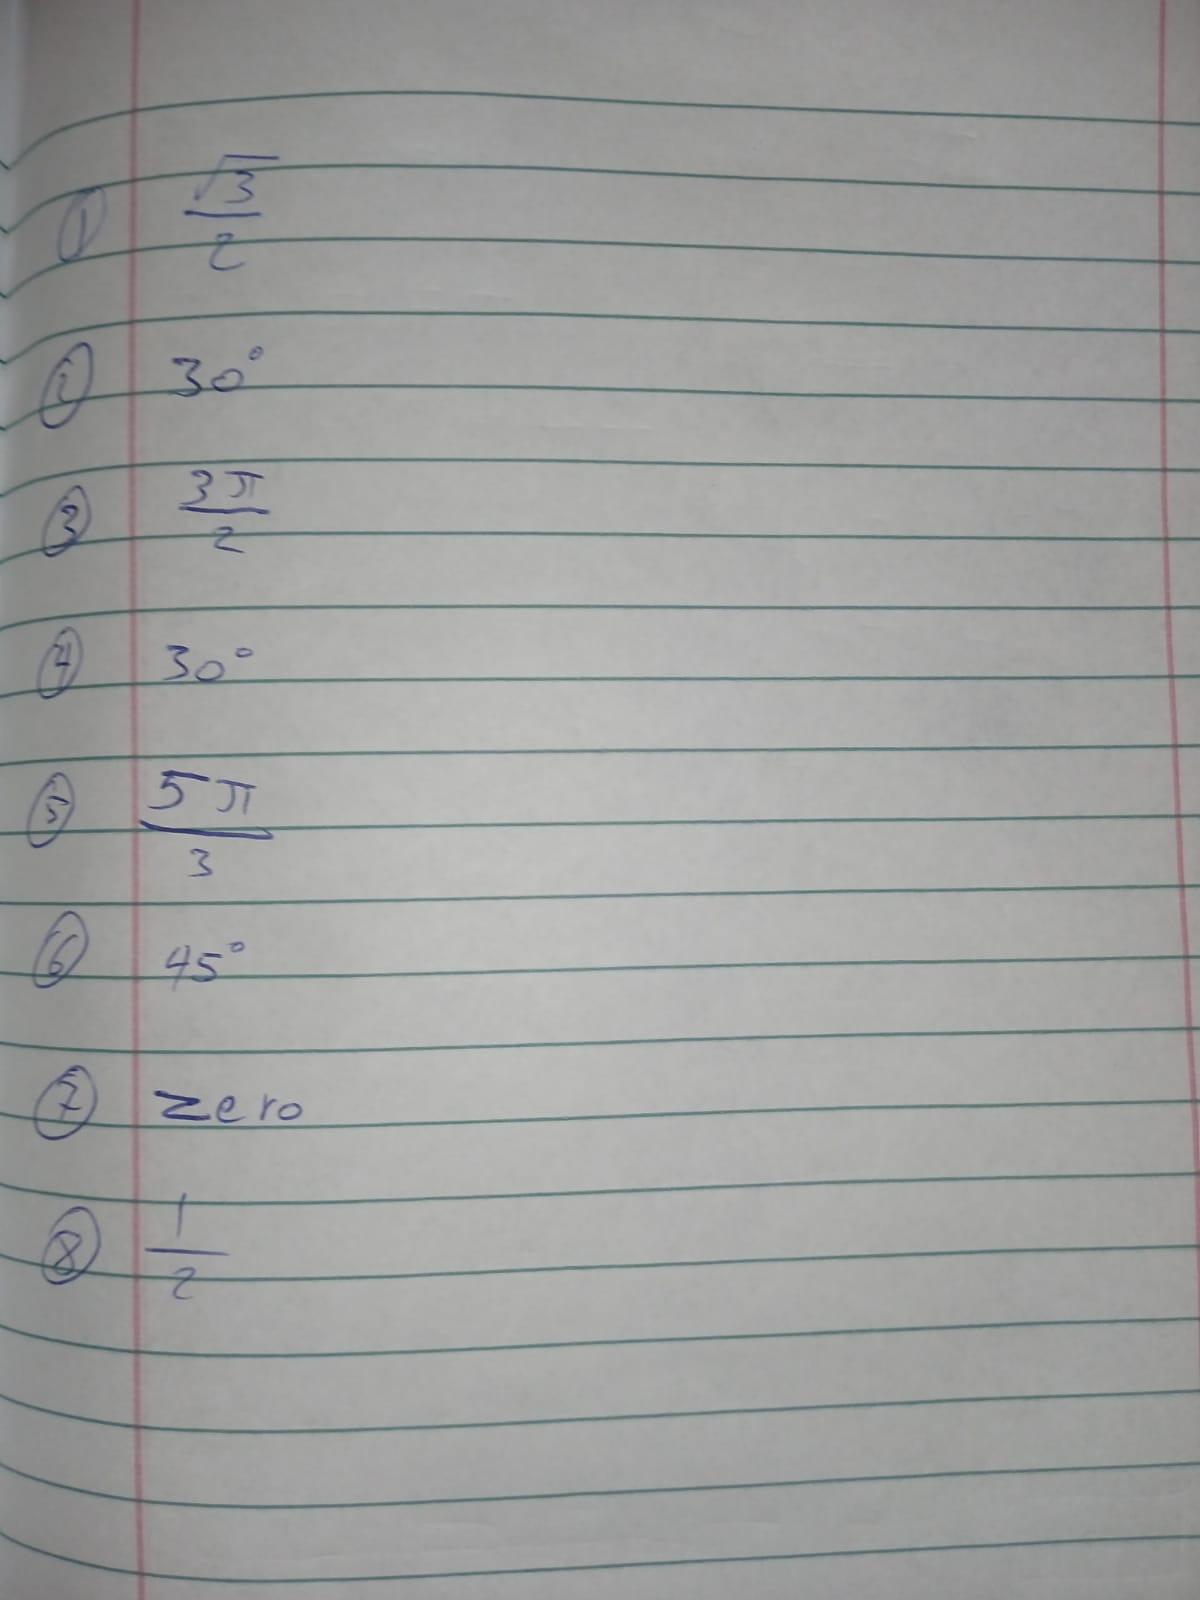 ① √3/2
② 30°
③ 3π/2
④ 30°
⑤ 5π/3
⑥ 45°
⑦ zero
⑧ 1/2